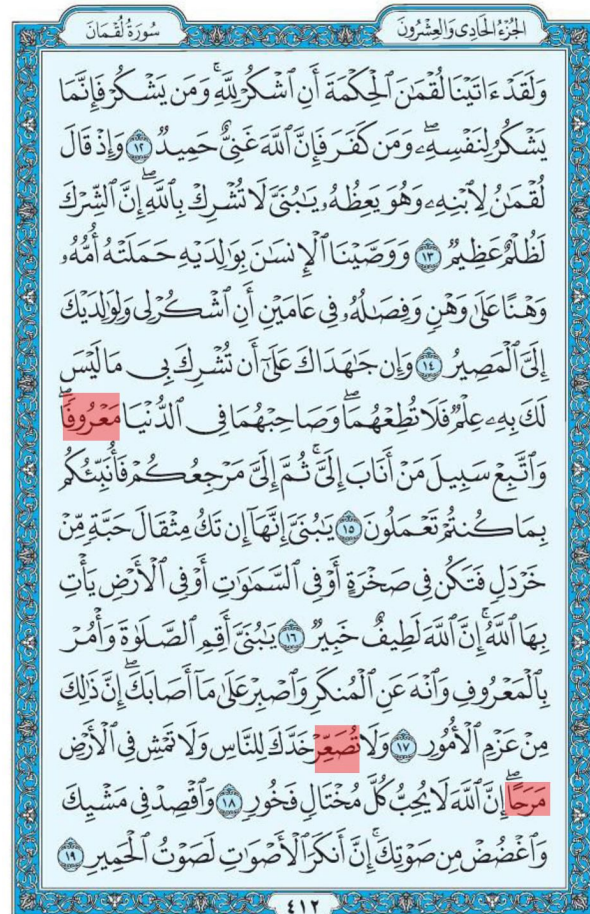 الجُزْءُ الحَادِى وَالعِشْرُونَ
سُورَةُ لُقْمَانَ
وَلَقَدْ ءَاتَيْنَا لُقْمَٰنَ ٱلْحِكْمَةَ أَنِ ٱشْكُرْ لِلَّهِۚ وَمَن يَشْكُرْ فَإِنَّمَا
يَشْكُرُ لِنَفْسِهِۦۖ وَمَن كَفَرَ فَإِنَّ ٱللَّهَ غَنِىٌّ حَمِيدٌ ١٢ وَإِذْ قَالَ
لُقْمَٰنُ لِٱبْنِهِۦ وَهُوَ يَعِظُهُۥ يَٰبُنَىَّ لَا تُشْرِكْ بِٱللَّهِۖ إِنَّ ٱلشِّرْكَ
لَظُلْمٌ عَظِيمٌ ١٣ وَوَصَّيْنَا ٱلْإِنسَٰنَ بِوَٰلِدَيْهِ حَمَلَتْهُ أُمُّهُۥ
وَهْنًا عَلَىٰ وَهْنٍ وَفِصَٰلُهُۥ فِى عَامَيْنِ أَنِ ٱشْكُرْ لِى وَلِوَٰلِدَيْكَ
إِلَىَّ ٱلْمَصِيرُ ١٤ وَإِن جَٰهَدَاكَ عَلَىٰٓ أَن تُشْرِكَ بِى مَا لَيْسَ
لَكَ بِهِۦ عِلْمٌ فَلَا تُطِعْهُمَاۖ وَصَاحِبْهُمَا فِى ٱلدُّنْيَا مَعْرُوفًاۖ
وَٱتَّبِعْ سَبِيلَ مَنْ أَنَابَ إِلَىَّۚ ثُمَّ إِلَىَّ مَرْجِعُكُمْ فَأُنَبِّئُكُم
بِمَا كُنتُمْ تَعْمَلُونَ ١٥ يَٰبُنَىَّ إِنَّهَآ إِن تَكُ مِثْقَالَ حَبَّةٍ مِّنْ
خَرْدَلٍ فَتَكُن فِى صَخْرَةٍ أَوْ فِى ٱلسَّمَٰوَٰتِ أَوْ فِى ٱلْأَرْضِ يَأْتِ
بِهَا ٱللَّهُۚ إِنَّ ٱللَّهَ لَطِيفٌ خَبِيرٌ ١٦ يَٰبُنَىَّ أَقِمِ ٱلصَّلَوٰةَ وَأْمُرْ
بِٱلْمَعْرُوفِ وَٱنْهَ عَنِ ٱلْمُنكَرِ وَٱصْبِرْ عَلَىٰ مَآ أَصَابَكَۖ إِنَّ ذَٰلِكَ
مِنْ عَزْمِ ٱلْأُمُورِ ١٧ وَلَا تُصَعِّرْ خَدَّكَ لِلنَّاسِ وَلَا تَمْشِ فِى ٱلْأَرْضِ
مَرَحًاۖ إِنَّ ٱللَّهَ لَا يُحِبُّ كُلَّ مُخْتَالٍ فَخُورٍ ١٨ وَٱقْصِدْ فِى مَشْيِكَ
وَٱغْضُضْ مِن صَوْتِكَۚ إِنَّ أَنكَرَ ٱلْأَصْوَٰتِ لَصَوْتُ ٱلْحَمِيرِ ١٩
٤١٢